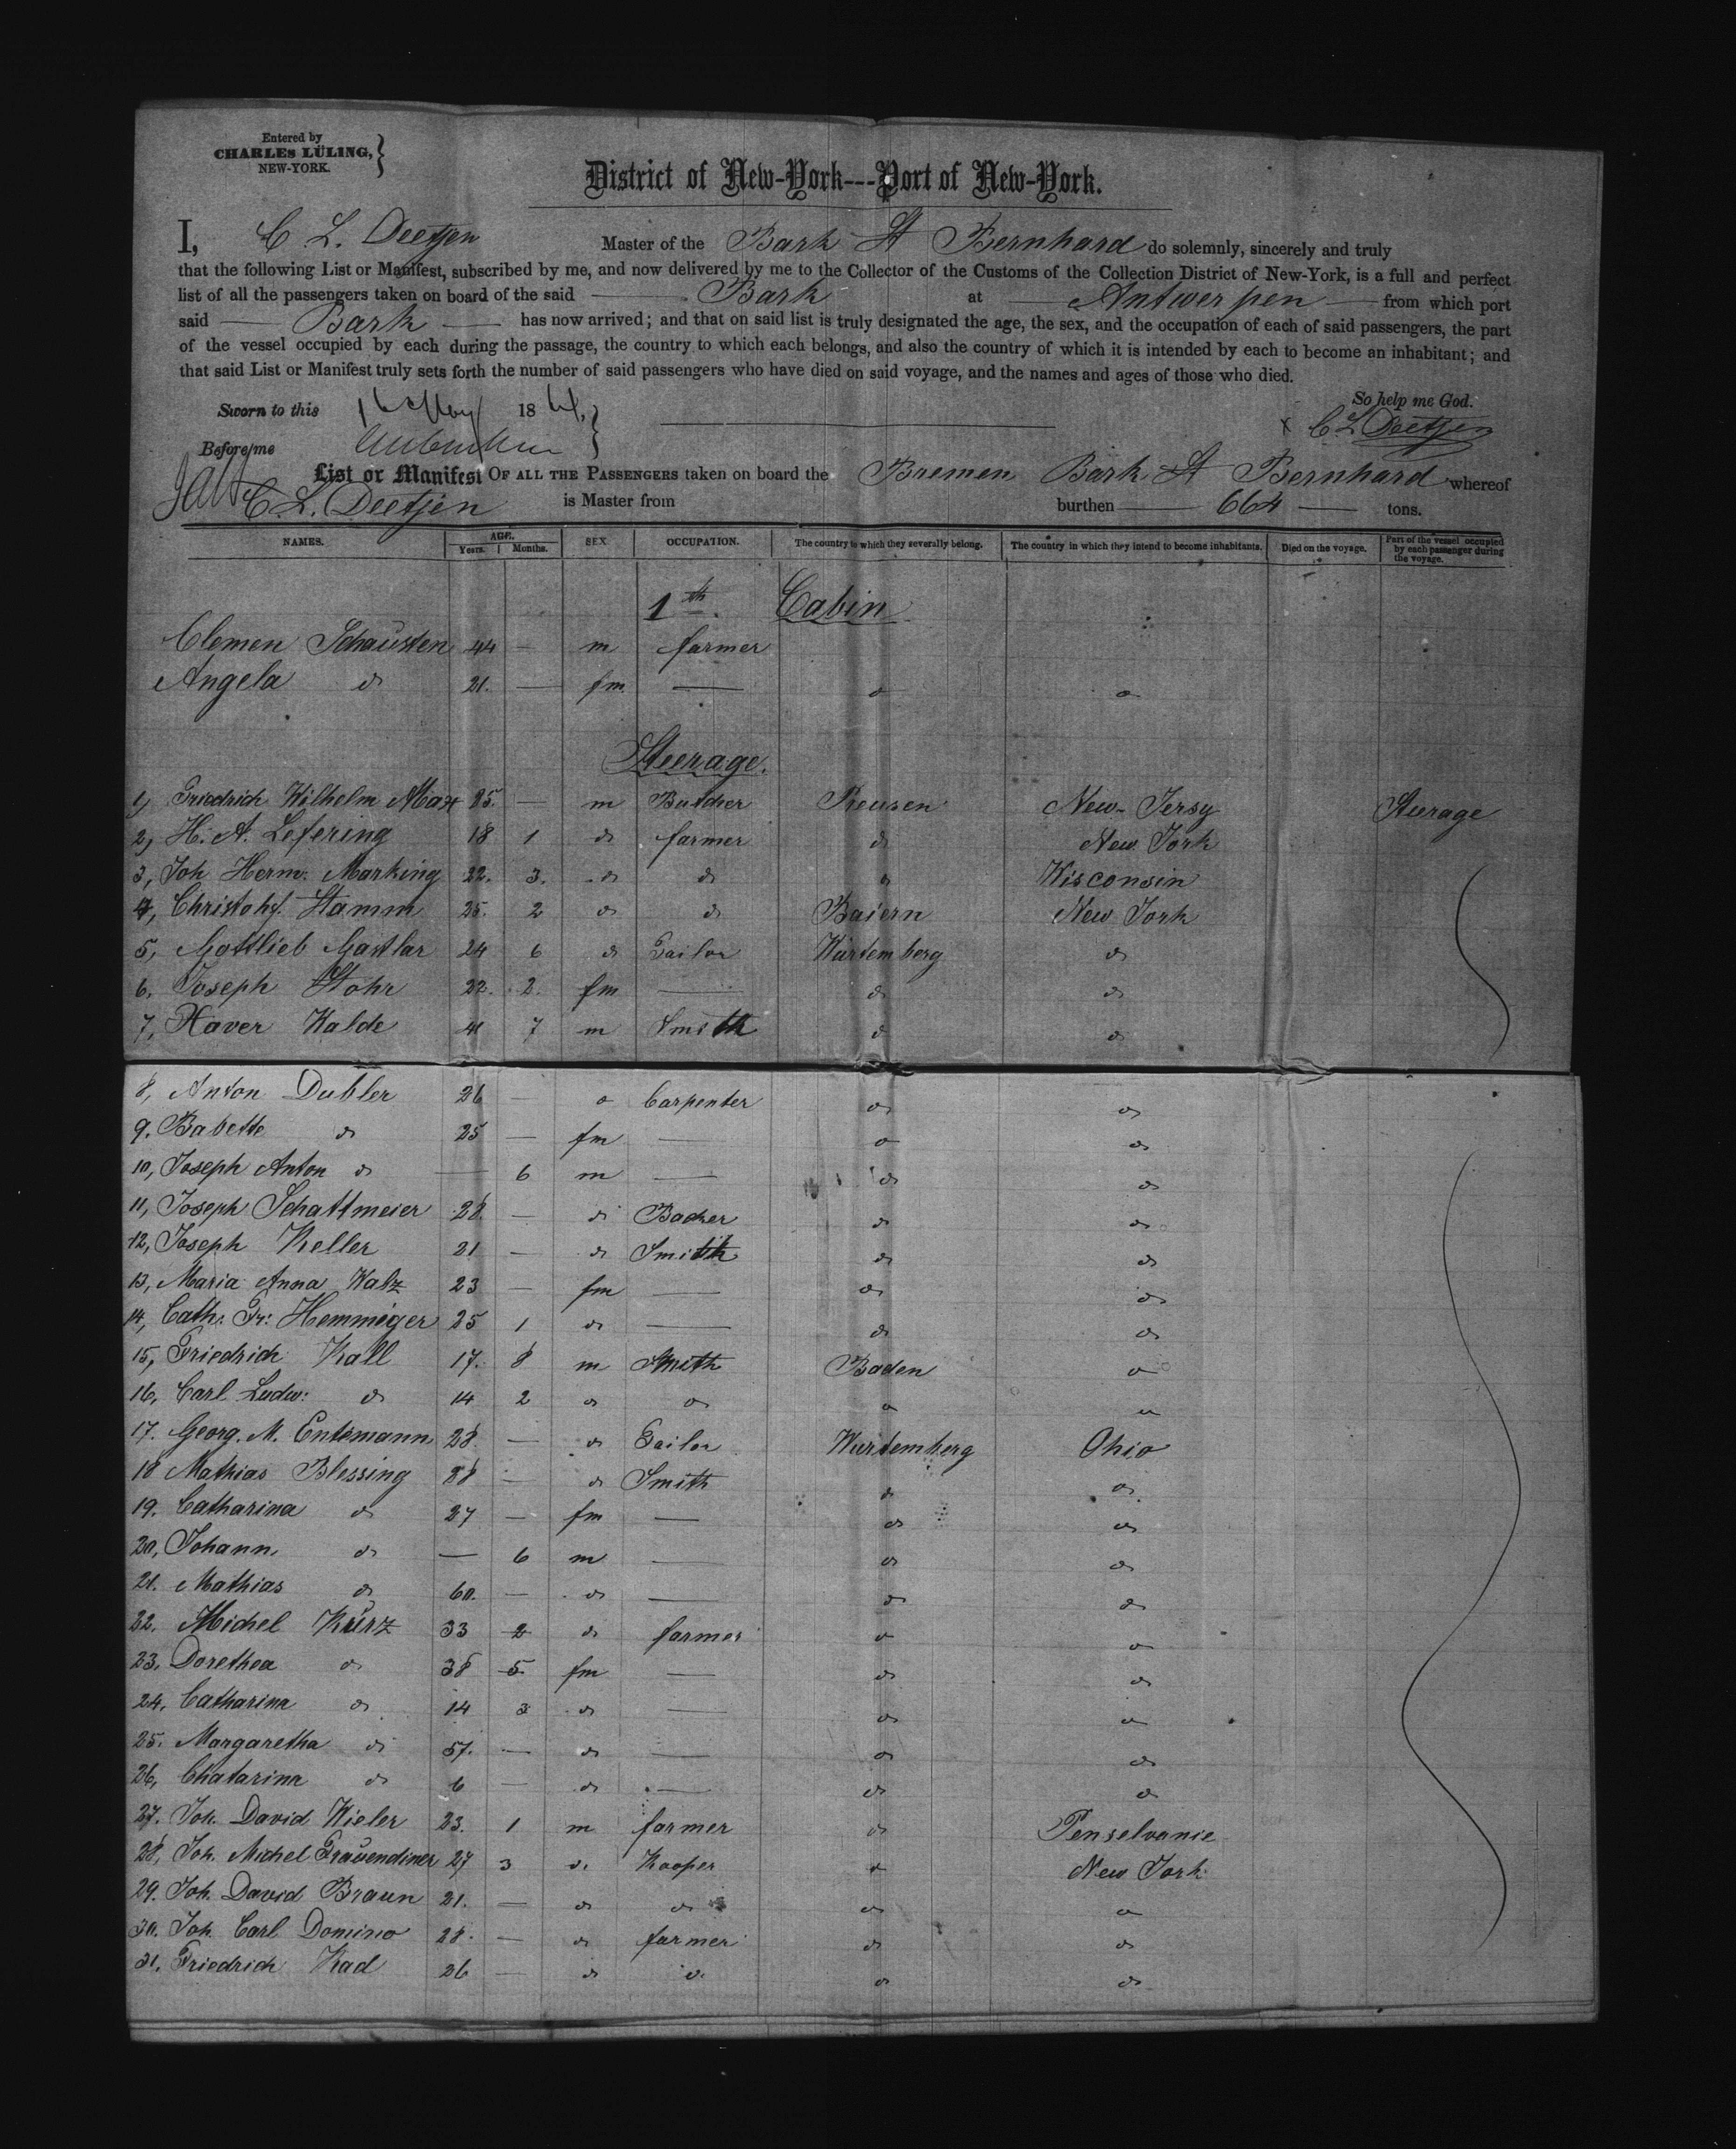 Entered by
CHARLES LÜLING,
NEW-YORK.
District of New-York---Port of New-York.
I, C. L. Deetjen Master of the Bark St Bernhard do solemnly, sincerely and truly
that the following List or Manifest, subscribed by me, and now delivered by me to the Collector of the Customs of the Collection District of New-York, is a full and perfect
list of all the passengers taken on board of the said Bark at Antwerpen from which port
said Bark has now arrived; and that on said list is truly designated the age, the sex, and the occupation of each of said passengers, the part
of the vessel occupied by each during the passage, the country to which each belongs, and also the country of which it is intended by each to become an inhabitant; and
that said List or Manifest truly sets forth the number of said passengers who have died on said voyage, and the names and ages of those who died.
So help me God.
Sworn to this May 18
x C. L. Deetjen
Before me
List or Manifest OF ALL THE PASSENGERS taken on board the Bremen Bark St Bernhard whereof
C. L. Deetjen is Master from burthen 664 tons.
NAMES. AGE. Years. Months. SEX OCCUPATION. The country to which they severally belong. The country in which they intend to become inhabitants. Died on the voyage. Part of the vessel occupied by each passenger during the voyage.
1th. Cabin
Clemen Schausten 44 — m farmer
Angela do 21. — fm — do do
Steerage.
1, Friedrich Wilhelm Max 25. — m Butcher Preusen New-Jersy Steerage
2, H. A. Lefering 18 1 do farmer do New York
3, Joh Herm. Marking 22. 3. do do do Wisconsin
4, Christohf. Stamm 25. 2 do do Baiern New York
5, Gottlieb Gastlar 24 6 do Tailor Würtemberg do
6. Joseph Stohr 22. 2. fm — do do
7, Xaver Walde 41 7 m Smith do do
8, Anton Dubler 26 — do Carpenter do do
9. Babette do 25 — fm — do do
10, Joseph Anton do — 6 m — do do
11, Joseph Schattmeier 28. — do Backer do do
12, Joseph Keller 21 — do Smith do do
13, Maria Anna Walz 23 — fm — do do
14, Cath: Fr: Hemmiger 25 1 do — do do
15, Friedrich Kall 17. 8 m Smith Baden do
16, Carl Ludw: do 14 2 do do do do
17. Georg. M. Entemann 28. — do Tailor Wurtemberg Ohio
18 Mathias Blessing 28 — do Smith do do
19. Catharina do 27 — fm — do do
20, Johann, do — 6 m — do do
21. Mathias do 60. — do — do do
22. Michel Kürz 33 2 do farmer do do
23. Dorethea do 38 5 fm — do do
24. Catharina do 14 3 do — do do
25. Margaretha do 57. — do — do do
26, Chatarina do 6 — do — do do
27. Joh. David Wieler 23. 1 m farmer do Penselvanie
28, Joh. Michel Traüendiner 27 3 do Kooper do New York
29. Joh. David Braun 21. — do do do do
30. Joh. Carl Domino 28. — do farmer do do
31, Friedrich Kad 26 — do do do do